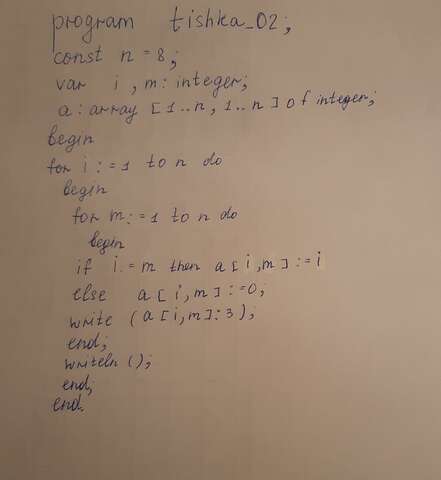 program tishka_02;
const n = 8;
var i, m: integer;
a: array [1..n, 1..n] of integer;
begin
for i:=1 to n do
begin
for m:=1 to n do
begin
if i=m then a[i,m]:=i
else a[i,m]:=0;
write (a[i,m]:3);
end;
writeln();
end;
end.